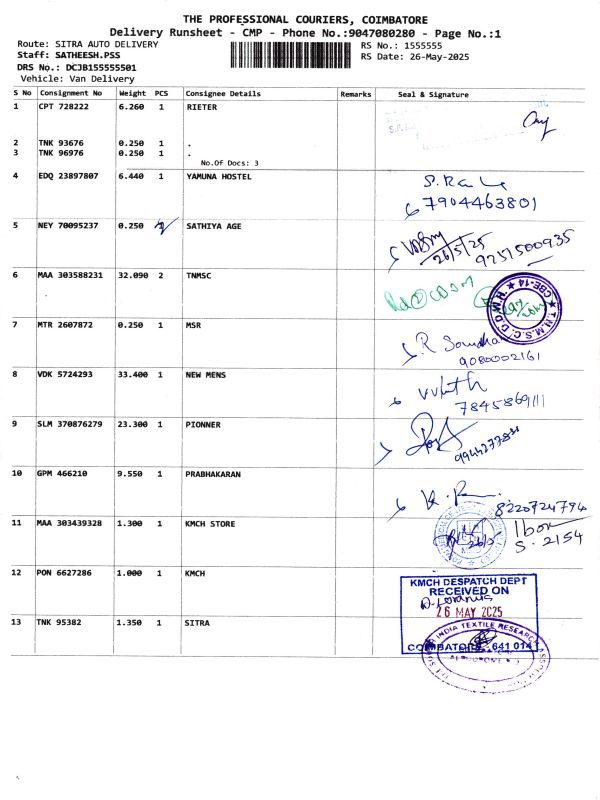 THE PROFESSIONAL COURIERS, COIMBATORE
Delivery Runsheet - CMP - Phone No.:9047080280 - Page No.:1
Route: SITRA AUTO DELIVERY RS No.: 1555555
Staff: SATHEESH.PSS RS Date: 26-May-2025
DRS No.: DCJB155555501
Vehicle: Van Delivery
S No Consignment No Weight PCS Consignee Details Remarks Seal & Signature
1 CPT 728222 6.260 1 RIETER
2 TNK 93676 0.250 1 .
3 TNK 96976 0.250 1 .
No.Of Docs: 3
4 EDQ 23897807 6.440 1 YAMUNA HOSTEL
7904463801
5 NEY 70095237 0.250 SATHIYA AGE
26/5/25
9257500935
6 MAA 303588231 32.090 2 TNMSC
CBE-14
7 MTR 2607872 0.250 1 MSR
9080002161
8 VDK 5724293 33.400 1 NEW MENS
7845869111
9 SLM 370876279 23.300 1 PIONNER
10 GPM 466210 9.550 1 PRABHAKARAN
8220724794
11 MAA 303439328 1.300 1 KMCH STORE
1 box
S. 2154
12 PON 6627286 1.000 1 KMCH
KMCH DESPATCH DEPT
RECEIVED ON
26 MAY 2025
COIMBATORE - 641 014
13 TNK 95382 1.350 1 SITRA
INDIA TEXTILE RESEARCH ASSOCIATION